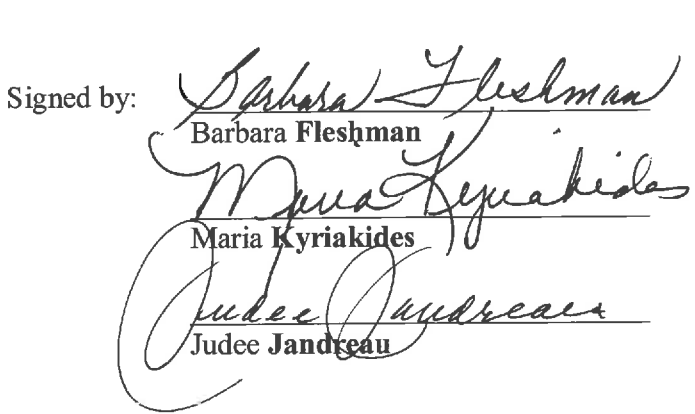 Signed by: Barbara Fleshman
Barbara Fleshman
Maria Kyriakides
Maria Kyriakides
Judee Jandreau
Judee Jandreau